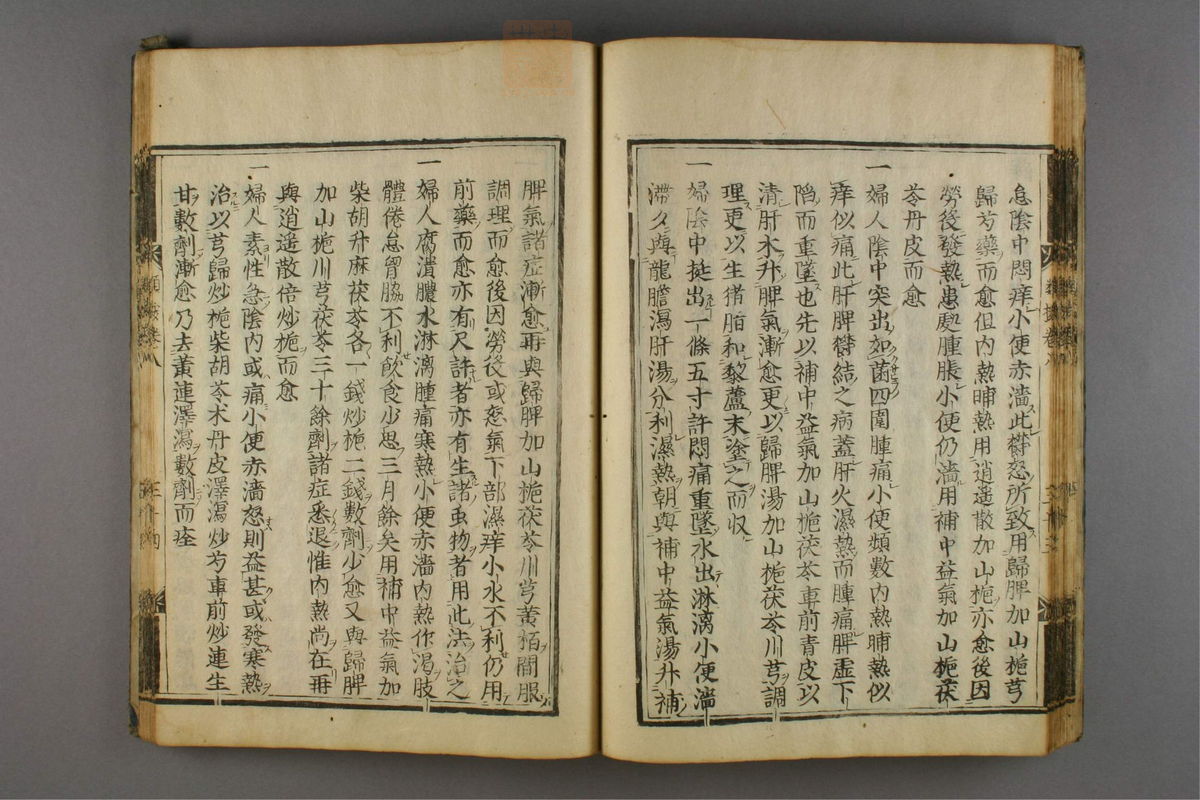 怠陰中悶痒小便赤濇此欝怒所致用歸脾加山梔芎
歸芍藥而愈但内熱晡熱用逍遥散加山梔亦愈後因
勞役發熱患處腫脹小便仍濇用補中益氣加山梔茯
苓丹皮而愈
一婦人陰中突出如菌四圍腫痛小便頻數内熱晡熱似
痒似痛此肝脾欝結之病蓋肝火濕熱而腫痛脾虚下
陷而重墜也先以補中益氣加山梔茯苓車前青皮以
清肝火升脾氣漸愈更以歸脾湯加山梔茯苓川芎調
理更以生猪脂和藜蘆末塗之而収
一婦陰中挺出一條五寸許悶痛重墜水出淋漓小便濇
滯夕與龍膽瀉肝湯分利濕熱朝與補中益氣湯升補
脾氣諸症漸愈再與歸脾加山梔茯苓川芎黄栢間服
調理而愈後因勞役或怒氣下部濕痒小水不利仍用
前藥而愈亦有尺許者亦有生諸虫物者用此法治之
一婦人腐潰膿水淋漓腫痛寒熱小便赤濇内熱作渴肢
體倦怠胷脇不利飲食少思三月餘矣用補中益氣加
柴胡升麻茯苓各一錢炒梔二錢數劑少愈又與歸脾
加山梔川芎茯苓三十餘劑諸症悉退惟内熱尚在再
與逍遥散倍炒梔而愈
一婦人素性急陰内或痛小便赤濇怒則益甚或發寒熱
治以芎歸炒梔柴胡苓术丹皮澤瀉炒芍車前炒連生
甘數劑漸愈乃去黄連澤瀉數劑而痊